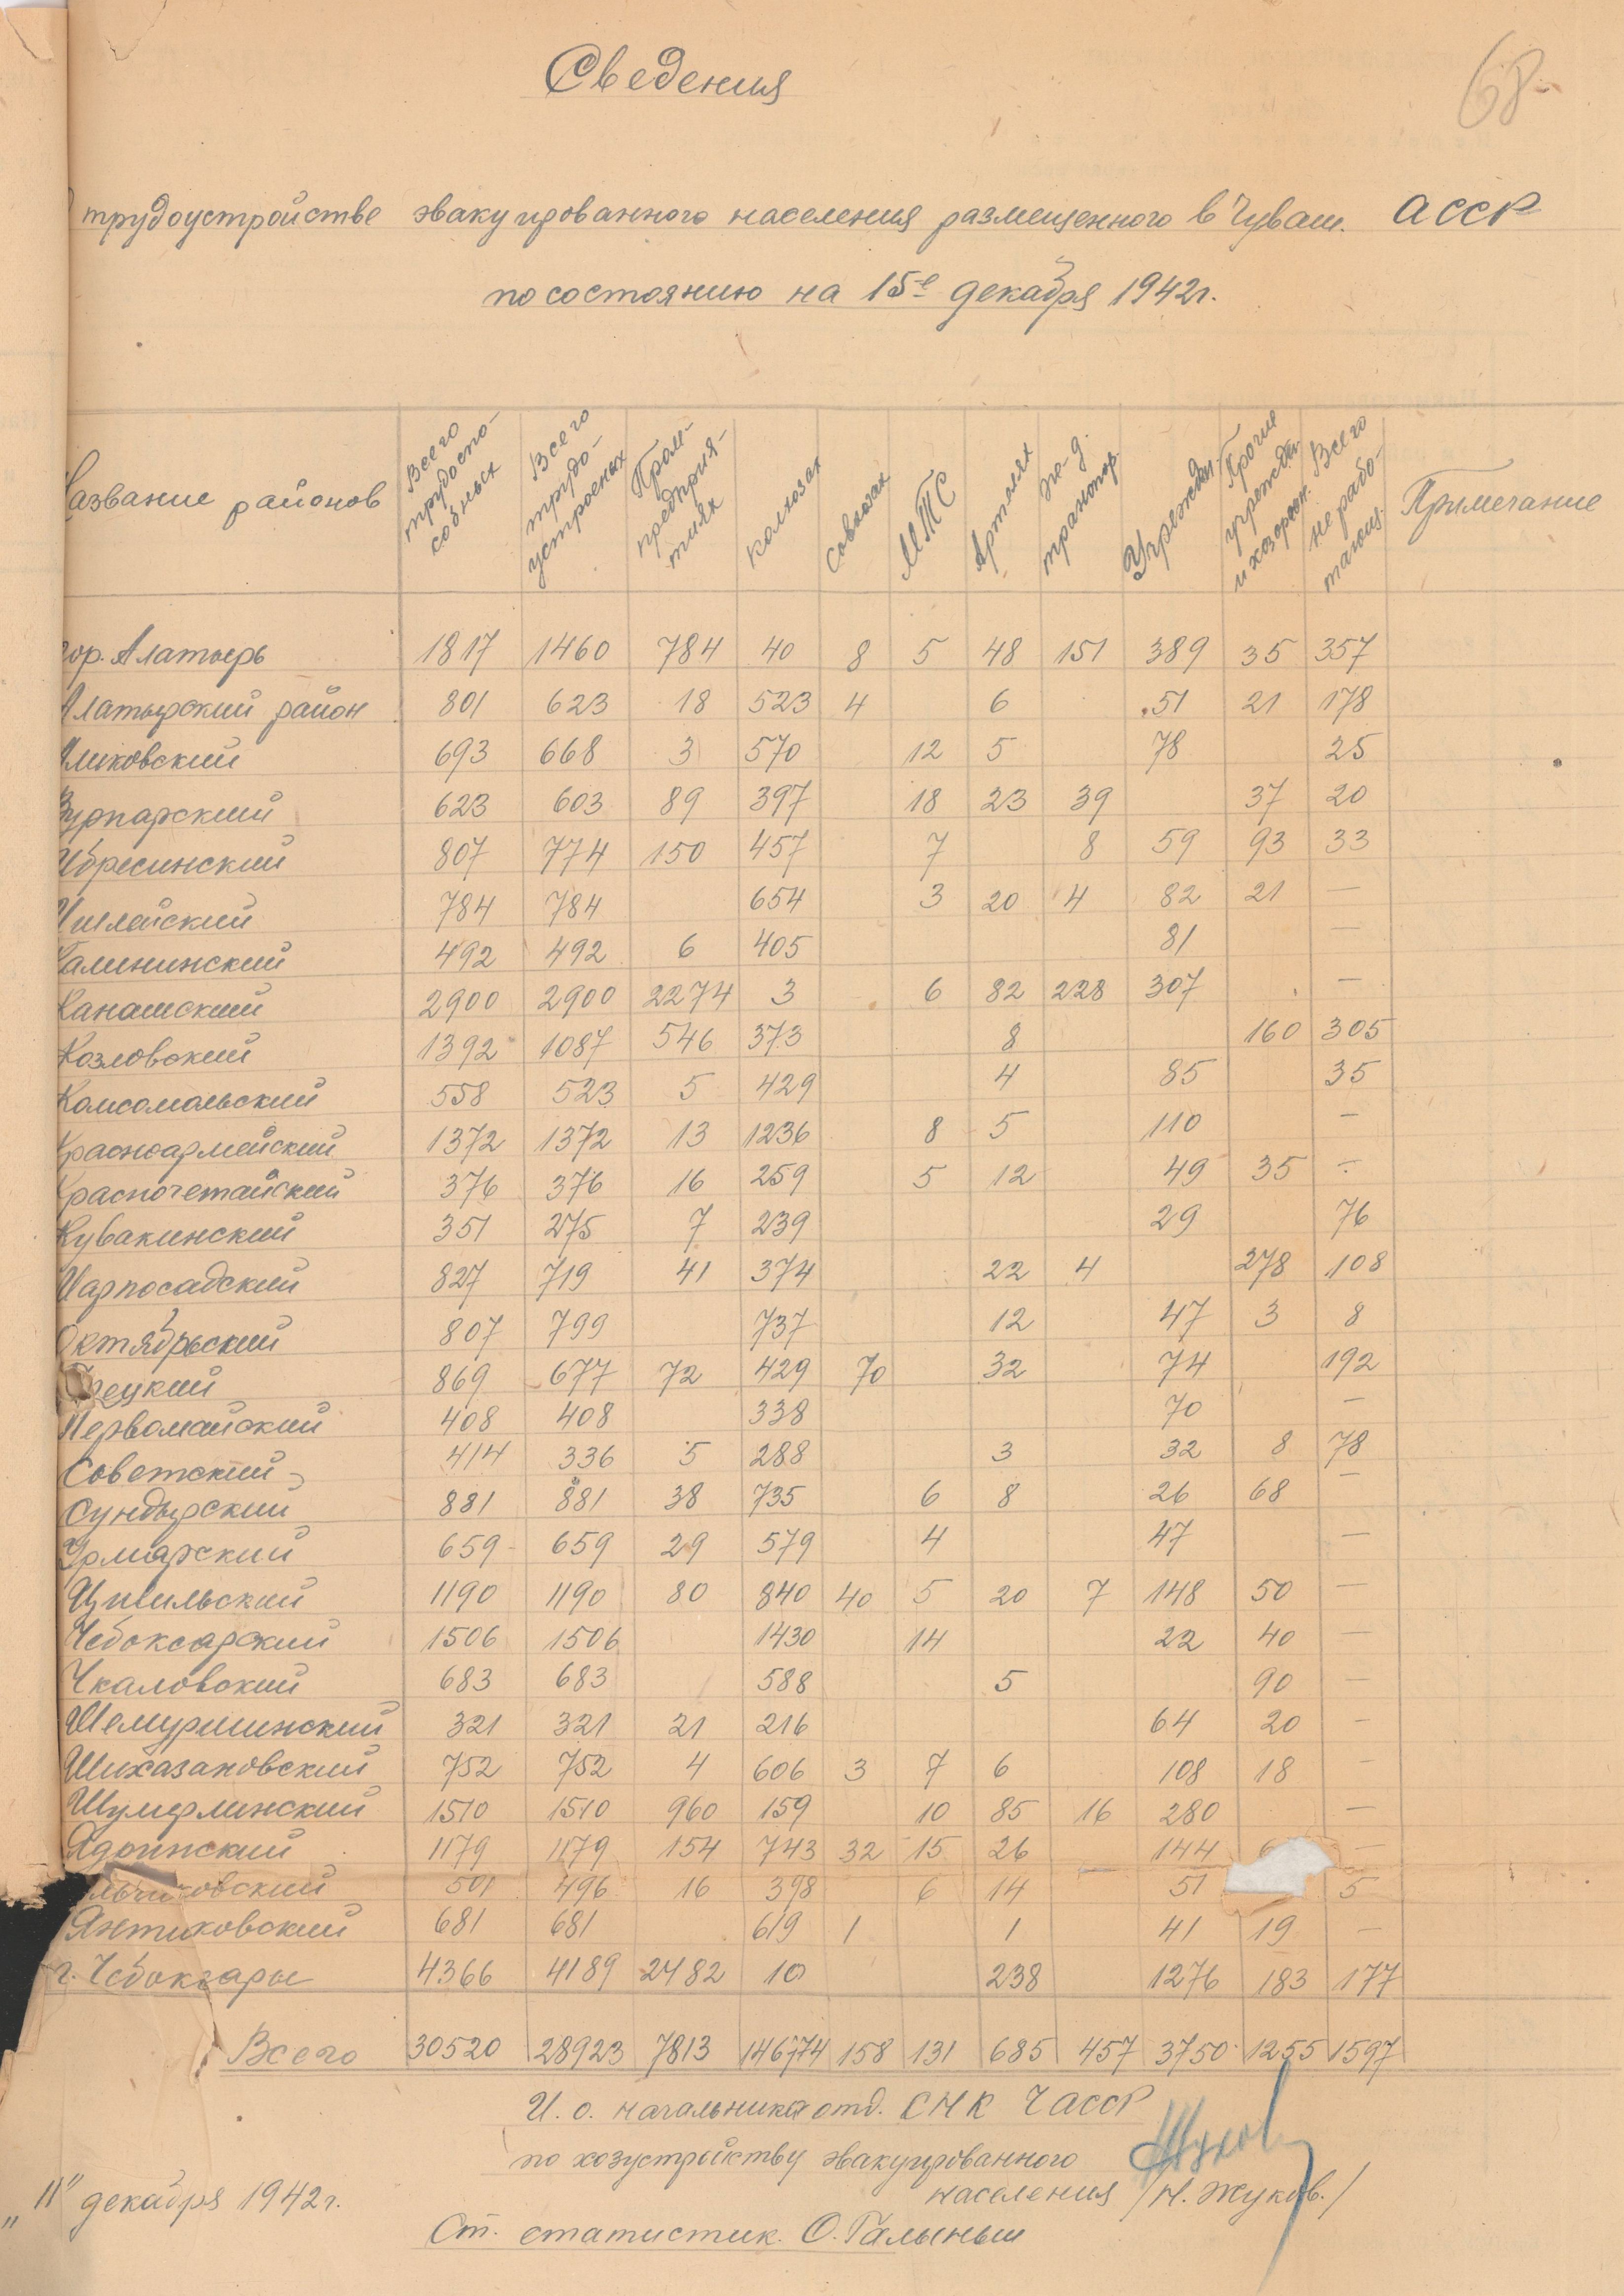 68
Сведения
трудоустройстве эвакуированного населения размещенного в Чуваш. АССР
по состоянию на 15е декабря 1942г.
Название районов Всего трудоспособных Всего трудоустроеных Пром-предприятиях колхозах совхозах МТС Артелях ж-д. транспор. Учрежден. Прочие учрежден. и хозорган. Всего не работающ. Примечание
гор. Алатырь 1817 1460 784 40 8 5 48 151 389 35 357
Алатырский район 801 623 18 523 4 6 51 21 178
Аликовский 693 668 3 570 12 5 78 25
Вурнарский 623 603 89 397 18 23 39 37 20
Ибресинский 807 774 150 457 7 8 59 93 33
Ишлейский 784 784 654 3 20 4 82 21 —
Калининский 492 492 6 405 81 —
Канашский 2900 2900 2274 3 6 82 228 307 —
Козловский 1392 1087 546 373 8 160 305
Комсомольский 558 523 5 429 4 85 35
Красноармейский 1372 1372 13 1236 8 5 110 —
Красночетайский 376 376 16 259 5 12 49 35 —
Кувакинский 351 275 7 239 29 76
Марпосадский 827 719 41 374 22 4 278 108
Октябрьский 807 799 737 12 47 3 8
ецкий 869 677 72 429 70 32 74 192
Первомайский 408 408 338 70 —
Советский 414 336 5 288 3 32 8 78
Сундырский 881 881 38 735 6 8 26 68 —
Урмарский 659 659 29 579 4 47 —
Цивильский 1190 1190 80 840 40 5 20 7 148 50 —
Чебоксарский 1506 1506 1430 14 22 40 —
Чкаловский 683 683 588 5 90 —
Шемуршинский 321 321 21 216 64 20 —
Шихазановский 752 752 4 606 3 7 6 108 18 —
Шумерлинский 1510 1510 960 159 10 85 16 280 —
Ядринский 1179 1179 154 743 32 15 26 144 —
льчиковский 501 496 16 398 6 14 51 5
Янтиковский 681 681 619 1 1 41 19 —
г. Чебоксары 4366 4189 2482 10 238 1276 183 177
Всего 30520 28923 7813 14674 158 131 685 457 3750 1255 1597
И. о. начальника отд. СНК ЧАССР
по хозустройству эвакуированного
населения /Н. Жуков./
"11" декабря 1942г.
Ст. статистик. О. Галынын